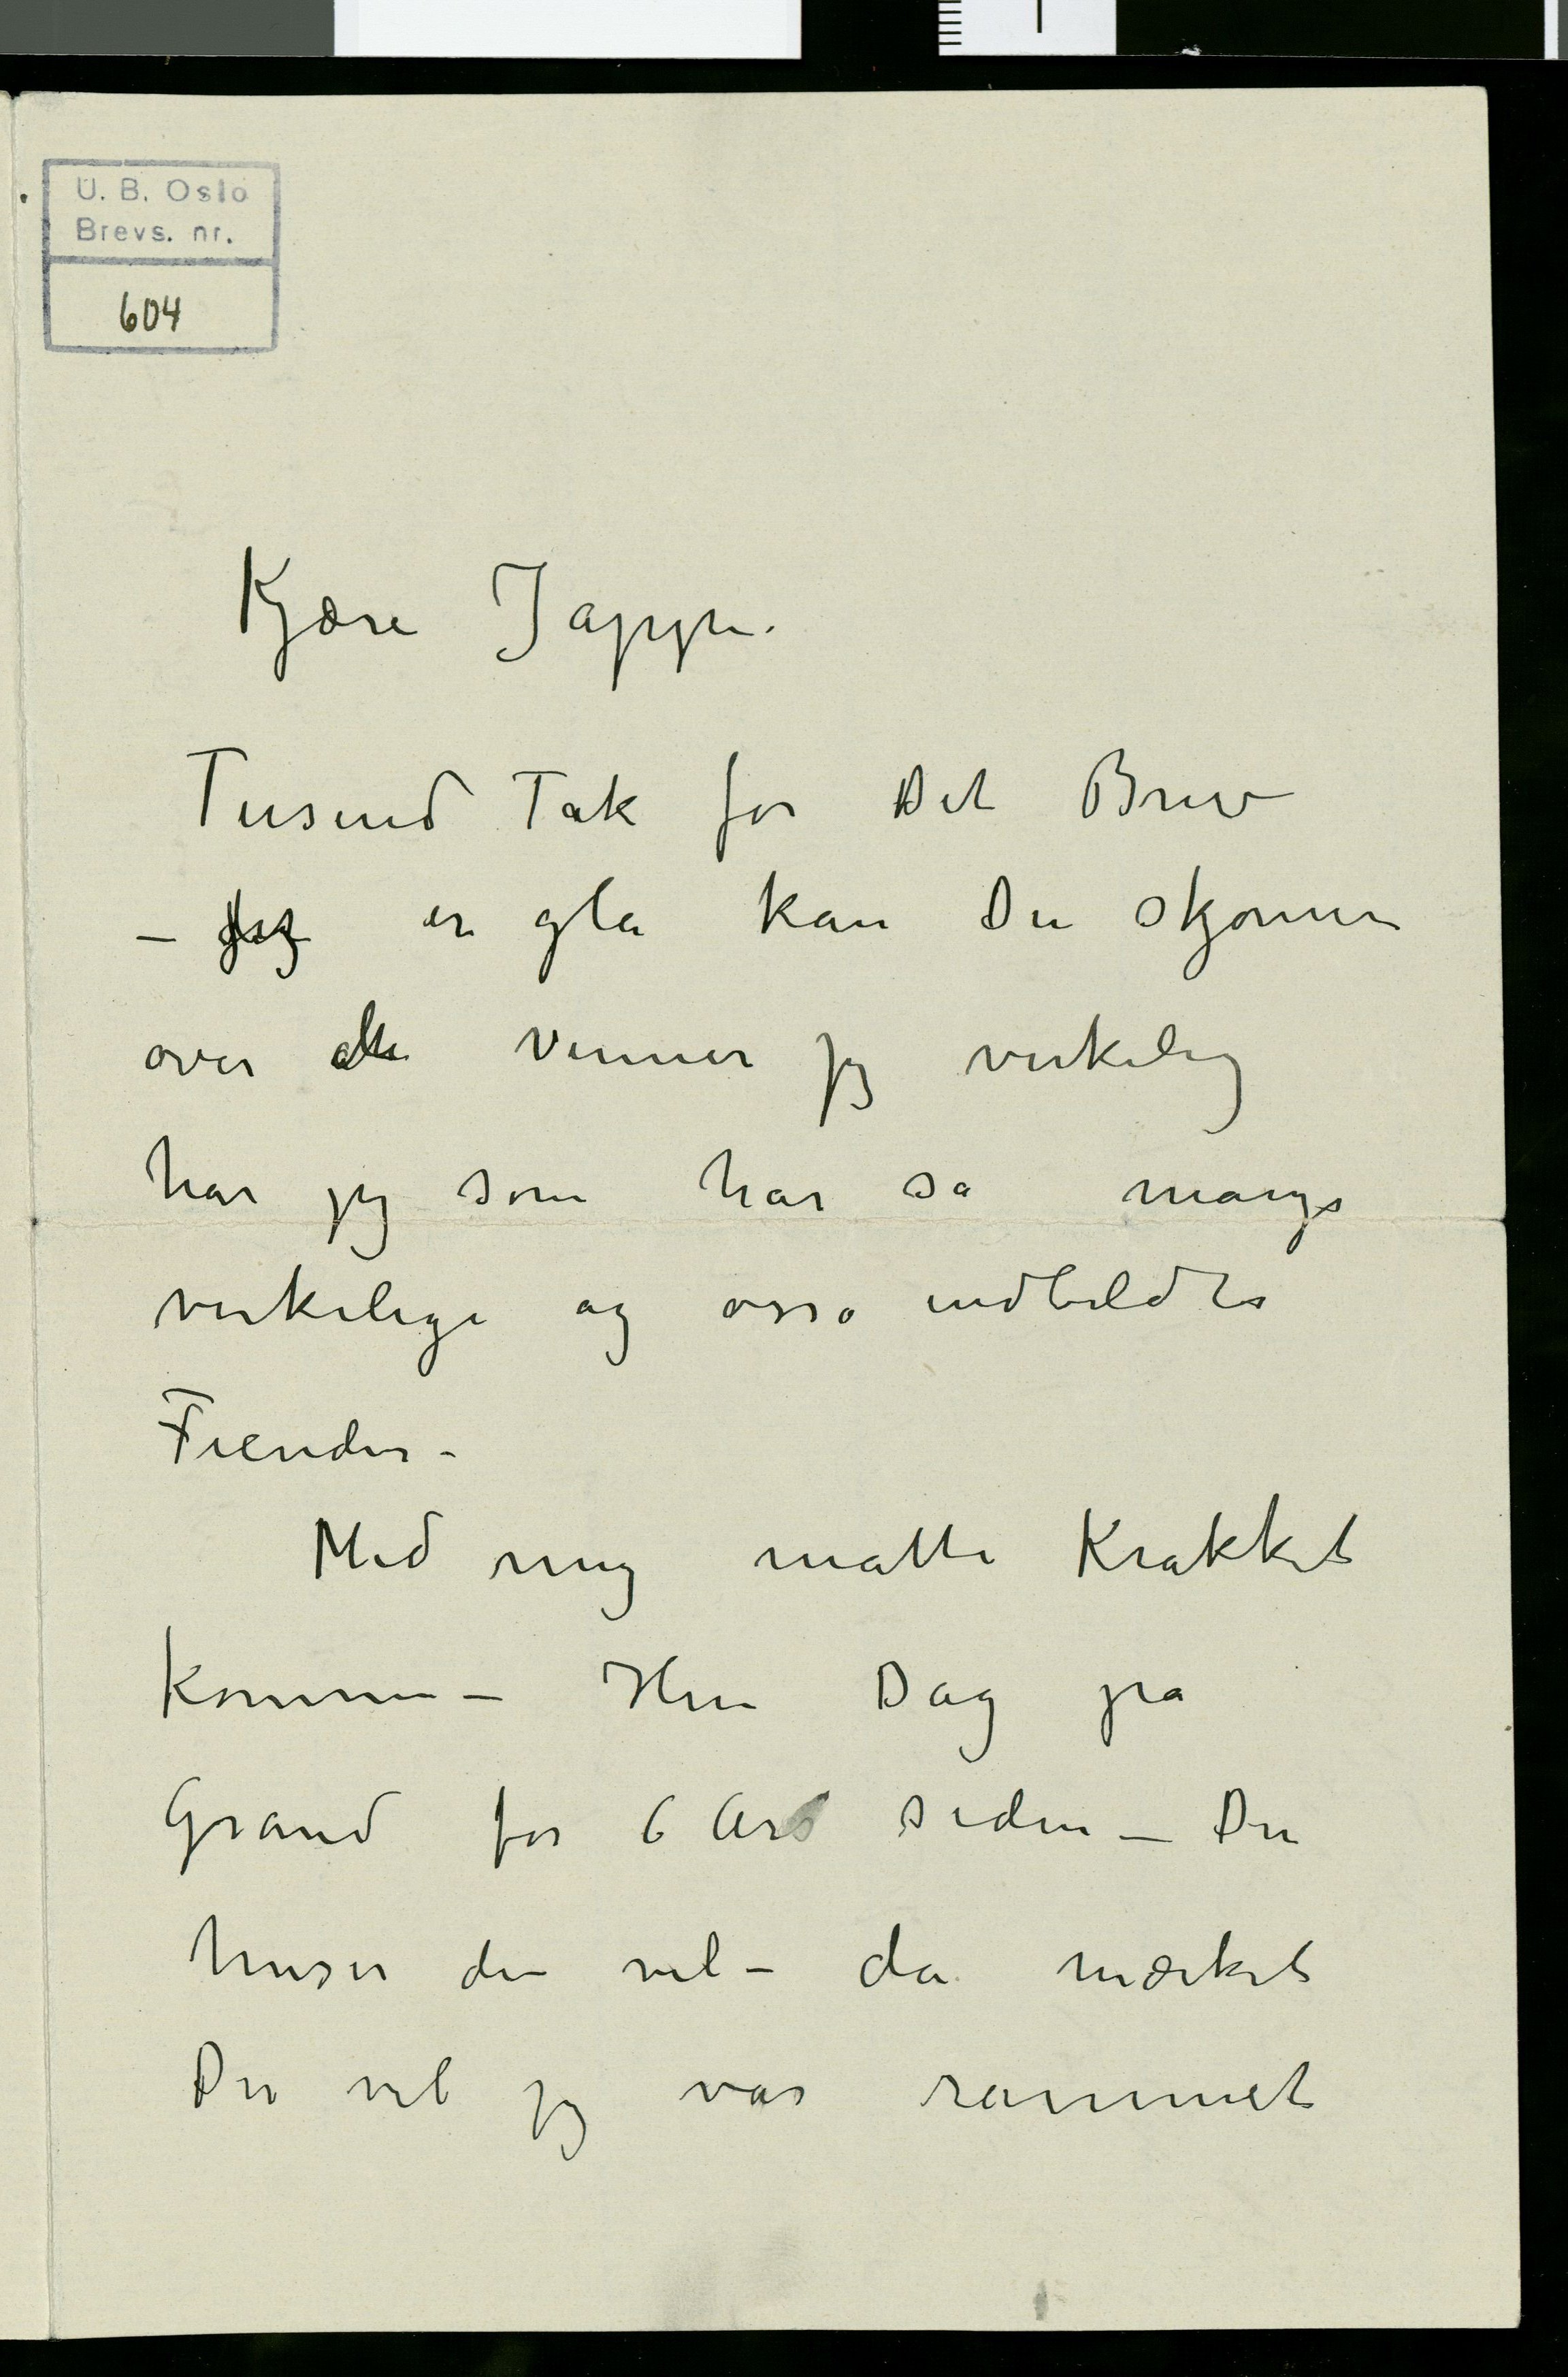 U. B. Oslo
Brevs. nr.
604
Kjære Jappe.
Tusend Tak for Dit Brev
– Jeg er gla kan Du skjønne
over alle Venner jeg virkelig
har jeg som har så mange
virkelige og osså indbildte
Fiender –
Med mig måtte Krakket
komme – Hin Dag på
Grand for 6 Års siden – Du
huser den vel – da mærket
Du vel jeg var rammet